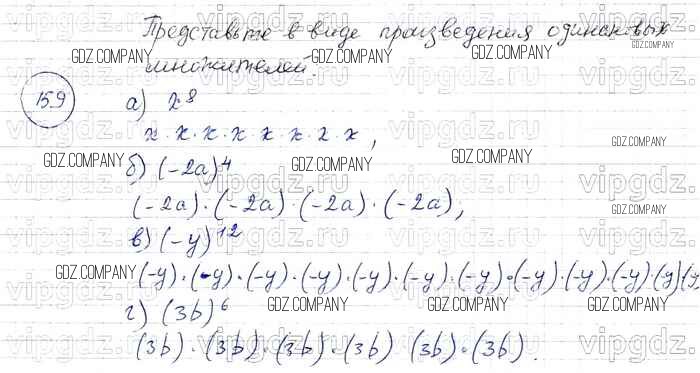 Представьте в виде произведения одинаковых
множителей.
159
а) x⁸
x · x · x · x x · x · x · x ,
б) (-2a)⁴
(-2a) · (-2a) · (-2a) · (-2a),
в) (-y)¹²
(-y) · (-y) · (-y) · (-y) · (-y) · (-y) · (-y) · (-y) · (-y) · (-y) (y) (y
г) (3b)⁶
(3b) · (3b) · (3b) · (3b) (3b) · (3b) .
GDZ.COMPANY
vipgdz.ru